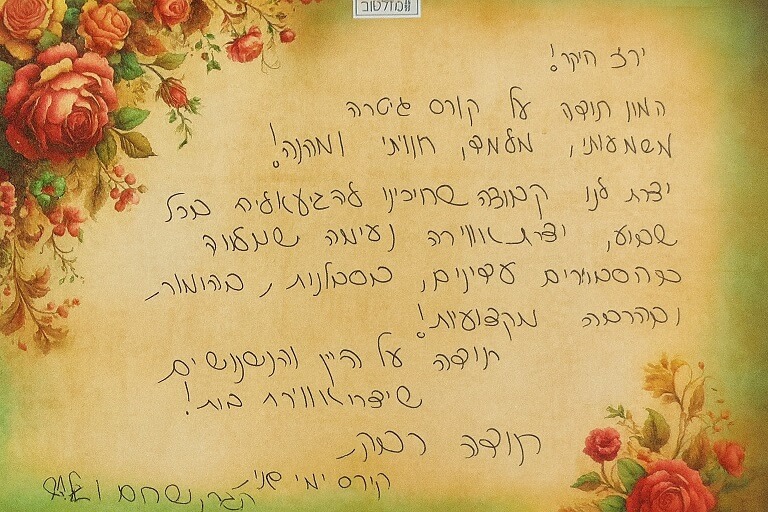 #מזלטוב
ירז היקר!
המון תודה על קורס גיטרה
משמעותי, מלמד, חוויתי ומהנה!
יצרת לנו קבוצה שחיכינו להגיע אליה בכל
שבוע, יצרת אווירה נעימה שמלווה
בהסברים עדינים, בסבלנות, בהימור,
ובהרבה מקצועיות!
תודה על היין והנשנושים
שיצרו אווירת בית!
תודה רבה,
קורס ימי שני,
הגר, נחום